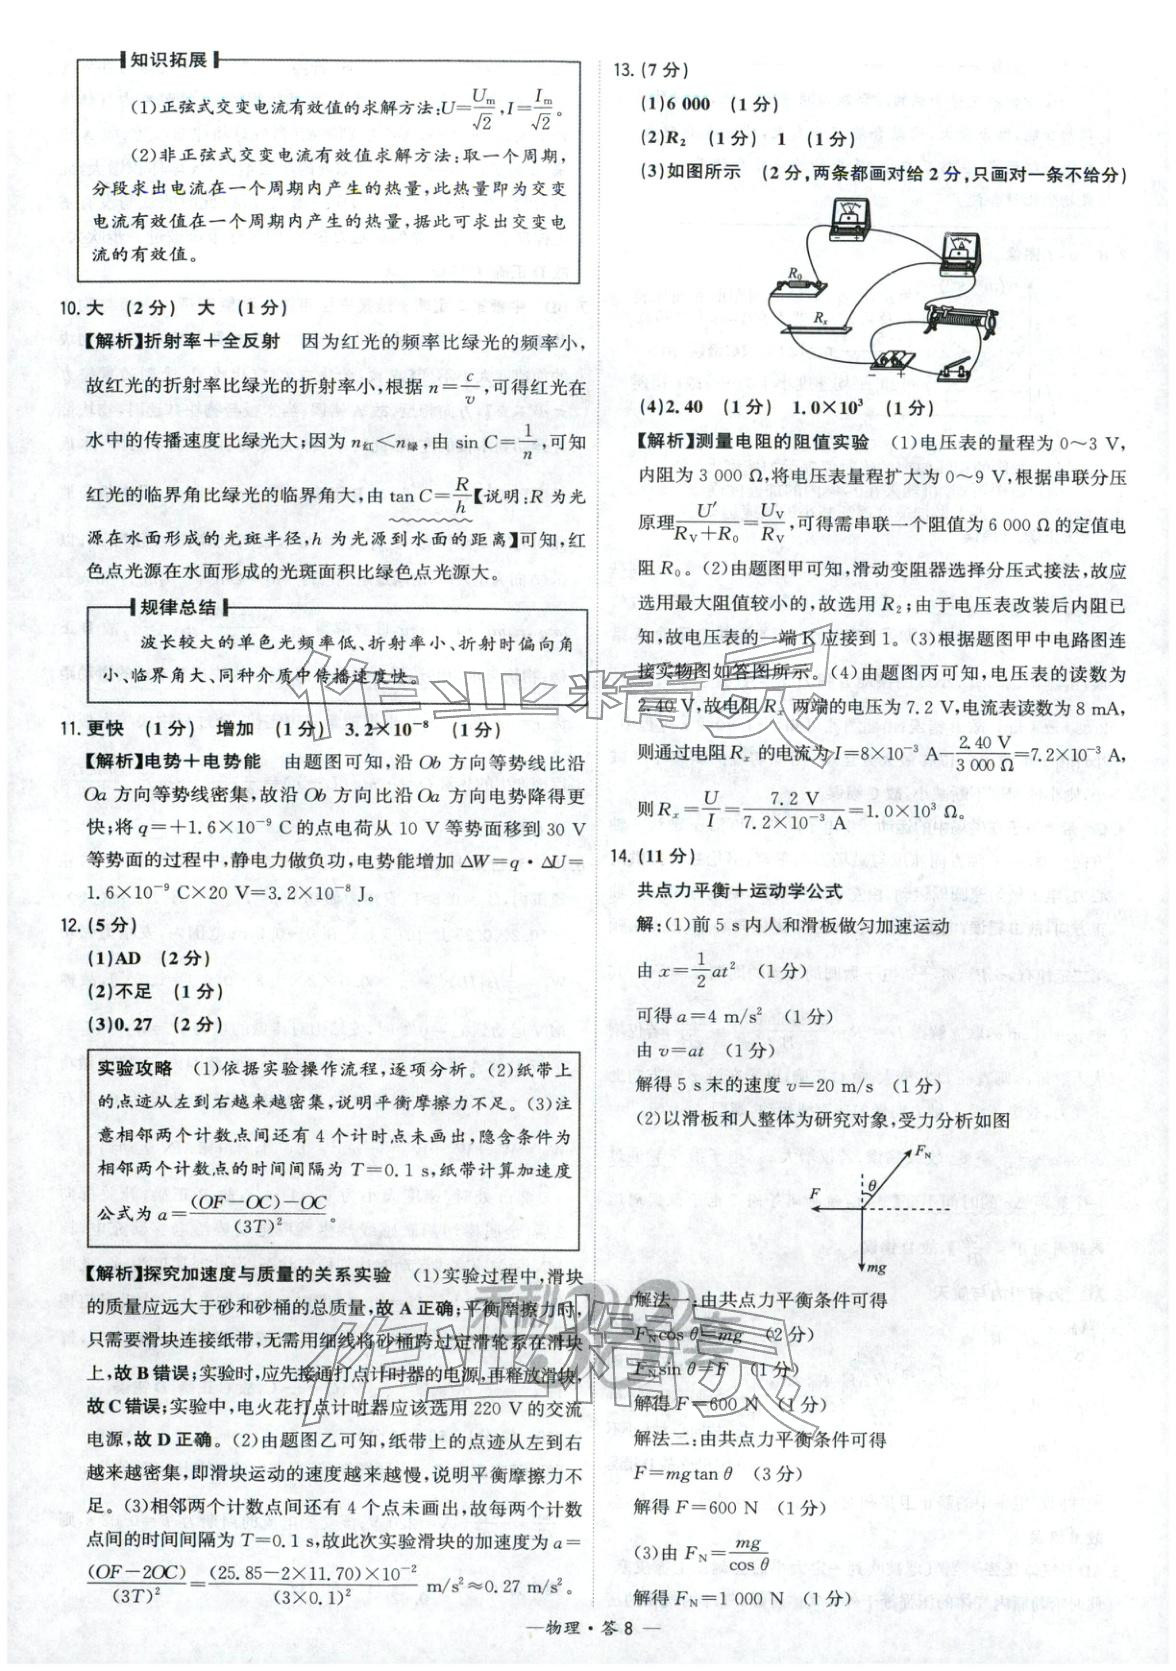 知识拓展
(1)正弦式交变电流有效值的求解方法:U=Um/√2,I=Im/√2。
(2)非正弦式交变电流有效值求解方法:取一个周期,
分段求出电流在一个周期内产生的热量,此热量即为交变
电流有效值在一个周期内产生的热量,据此可求出交变电
流的有效值。
10.大 (2分) 大 (1分)
【解析】折射率+全反射 因为红光的频率比绿光的频率小,
故红光的折射率比绿光的折射率小,根据 n=c/v,可得红光在
水中的传播速度比绿光大;因为 n红<n绿,由 sin C=1/n,可知
红光的临界角比绿光的临界角大,由 tan C=R/h【说明:R 为光
源在水面形成的光斑半径,h 为光源到水面的距离】可知,红
色点光源在水面形成的光斑面积比绿色点光源大。
规律总结
波长较大的单色光频率低、折射率小、折射时偏向角
小、临界角大、同种介质中传播速度快。
11.更快 (1分) 增加 (1分) 3.2×10⁻⁸ (1分)
【解析】电势+电势能 由题图可知,沿 Ob 方向等势线比沿
Oa 方向等势线密集,故沿 Ob 方向比沿 Oa 方向电势降得更
快;将 q=+1.6×10⁻⁹ C的点电荷从 10 V 等势面移到 30 V
等势面的过程中,静电力做负功,电势能增加 ΔW=q·ΔU=
1.6×10⁻⁹ C×20 V=3.2×10⁻⁸ J。
12.(5分)
(1)AD (2分)
(2)不足 (1分)
(3)0.27 (2分)
实验攻略 (1)依据实验操作流程,逐项分析。(2)纸带上
的点迹从左到右越来越密集,说明平衡摩擦力不足。(3)注
意相邻两个计数点间还有 4 个计时点未画出,隐含条件为
相邻两个计数点的时间间隔为 T=0.1 s,纸带计算加速度
公式为 a=(OF-OC)-OC/(3T)²。
【解析】探究加速度与质量的关系实验 (1)实验过程中,滑块
的质量应远大于砂和砂桶的总质量,故 A 正确;平衡摩擦力时,
只需要滑块连接纸带,无需用细线将砂桶跨过定滑轮系在滑块
上,故 B 错误;实验时,应先接通打点计时器的电源,再释放滑块,
故 C 错误;实验中,电火花打点计时器应该选用 220 V 的交流
电源,故 D 正确。(2)由题图乙可知,纸带上的点迹从左到右
越来越密集,即滑块运动的速度越来越慢,说明平衡摩擦力不
足。(3)相邻两个计数点间还有 4 个点未画出,故每两个计数
点间的时间间隔为 T=0.1 s,故此次实验滑块的加速度为 a=
(OF-2OC)/(3T)²=(25.85-2×11.70)×10⁻²/(3×0.1)² m/s²≈0.27 m/s²。
13.(7分)
(1)6 000 (1分)
(2)R₂ (1分) 1 (1分)
(3)如图所示 (2分,两条都画对给2分,只画对一条不给分)
V
A
R₀
Rₓ
(4)2.40 (1分) 1.0×10³ (1分)
【解析】测量电阻的阻值实验 (1)电压表的量程为 0~3 V,
内阻为 3 000 Ω,将电压表量程扩大为 0~9 V,根据串联分压
原理U′/(Rv+R₀)=Uv/Rv,可得需串联一个阻值为 6 000 Ω 的定值电
阻 R₀。(2)由题图甲可知,滑动变阻器选择分压式接法,故应
选用最大阻值较小的,故选用 R₂;由于电压表改装后内阻已
知,故电压表的一端 K 应接到 1。(3)根据题图甲中电路图连
接实物图如答图所示。(4)由题图丙可知,电压表的读数为
2.40 V,故电阻 Rₓ 两端的电压为 7.2 V,电流表读数为 8 mA,
则通过电阻 Rₓ 的电流为 I=8×10⁻³ A-2.40 V/3 000 Ω=7.2×10⁻³ A,
则 Rₓ=U/I=7.2 V/7.2×10⁻³ A=1.0×10³ Ω。
14.(11分)
共点力平衡+运动学公式
解:(1)前 5 s 内人和滑板做匀加速运动
由 x=1/2at² (1分)
可得 a=4 m/s² (1分)
由 v=at (1分)
解得 5 s 末的速度 v=20 m/s (1分)
(2)以滑板和人整体为研究对象,受力分析如图
FN
θ
F
mg
解法一:由共点力平衡条件可得
FNcos θ=mg (2分)
FNsin θ=F (1分)
解得 F=600 N (1分)
解法二:由共点力平衡条件可得
F=mgtan θ (3分)
解得 F=600 N (1分)
(3)由 FN=mg/cos θ
解得 FN=1 000 N (1分)
—物理·答 8—
作业精灵
作业精灵